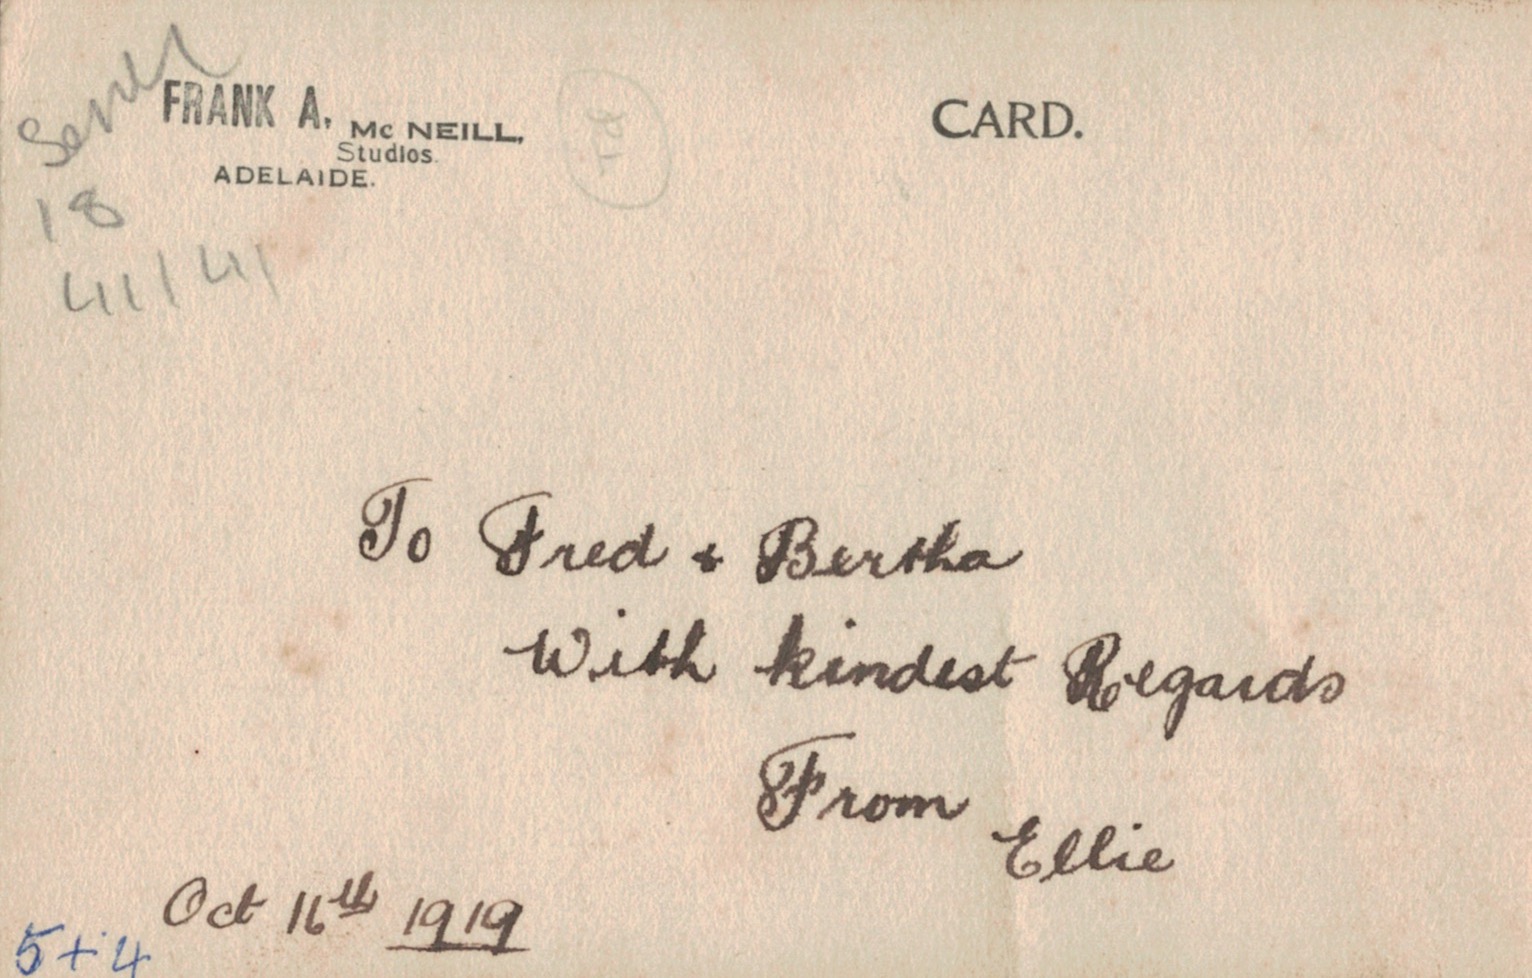 FRANK A.
Mc NEILL,
Studios.
ADELAIDE.
CARD.
18
41/41
To Fred + Bertha
With kindest Regards
From
Ellie
Oct 16th 1919
5+4